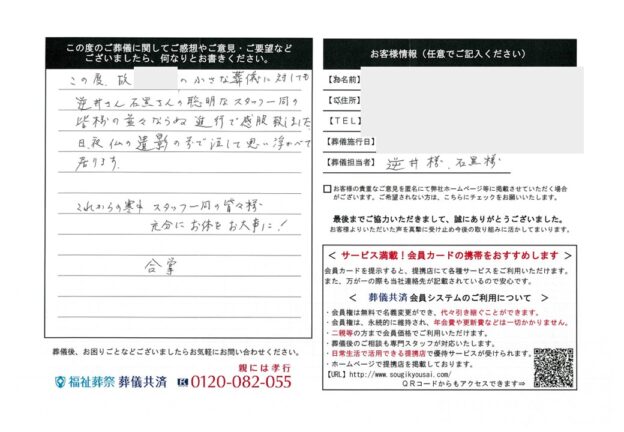 この度のご葬儀に関してご感想やご意見・ご要望など
ございましたら、何なりとお書きください。
この度、故 の小さな葬儀に対しても
逆井さん 石黒さんの聡明なスタッフ一同の
皆様の並々ならぬ進行で感服致しました
日夜仏の遺影の前で涙して思い浮かべて
居ります。
これからの寒中 スタッフ一同の皆々様
充分にお体をお大事に!
合掌
葬儀後、お困りごとなどございましたらお気軽にお問い合わせください。
親には孝行
福祉葬祭 葬儀共済 0120-082-055
お客様情報(任意でご記入ください)
【お名前】
【ご住所】
【TEL】
【葬儀施行日】
【葬儀担当者】 逆井様、石黒様
お客様の貴重なご意見を匿名にて弊社ホームページ等に掲載させていただく場合
がございます。ご希望されない方は、こちらにチェックをお願いいたします。
最後までご協力いただきまして、誠にありがとうございました。
お客様よりいただいた声を真摯に受け止め今後の取り組みに活かしてまいります。
< サービス満載!会員カードの携帯をおすすめします >
会員カードを提示すると、提携店にて各種サービスをご利用いただけます。
また、万が一の際も当社連絡先が記載されているので安心です。
< 葬儀共済 会員システムのご利用について >
・会員権は無料で名義変更ができ、代々引き継ぐことができます。
・会員権は、永続的に維持され、年会費や更新費などは一切かかりません。
・二親等の方まで会員価格でご利用いただけます。
・葬儀後のご相談も専門スタッフが対応いたします。
・日常生活で活用できる提携店で優待サービスが受けられます。
・ホームページで提携店を掲載しております。
【URL】http://www.sougikyousai.com/
QRコードからもアクセスできます⇒